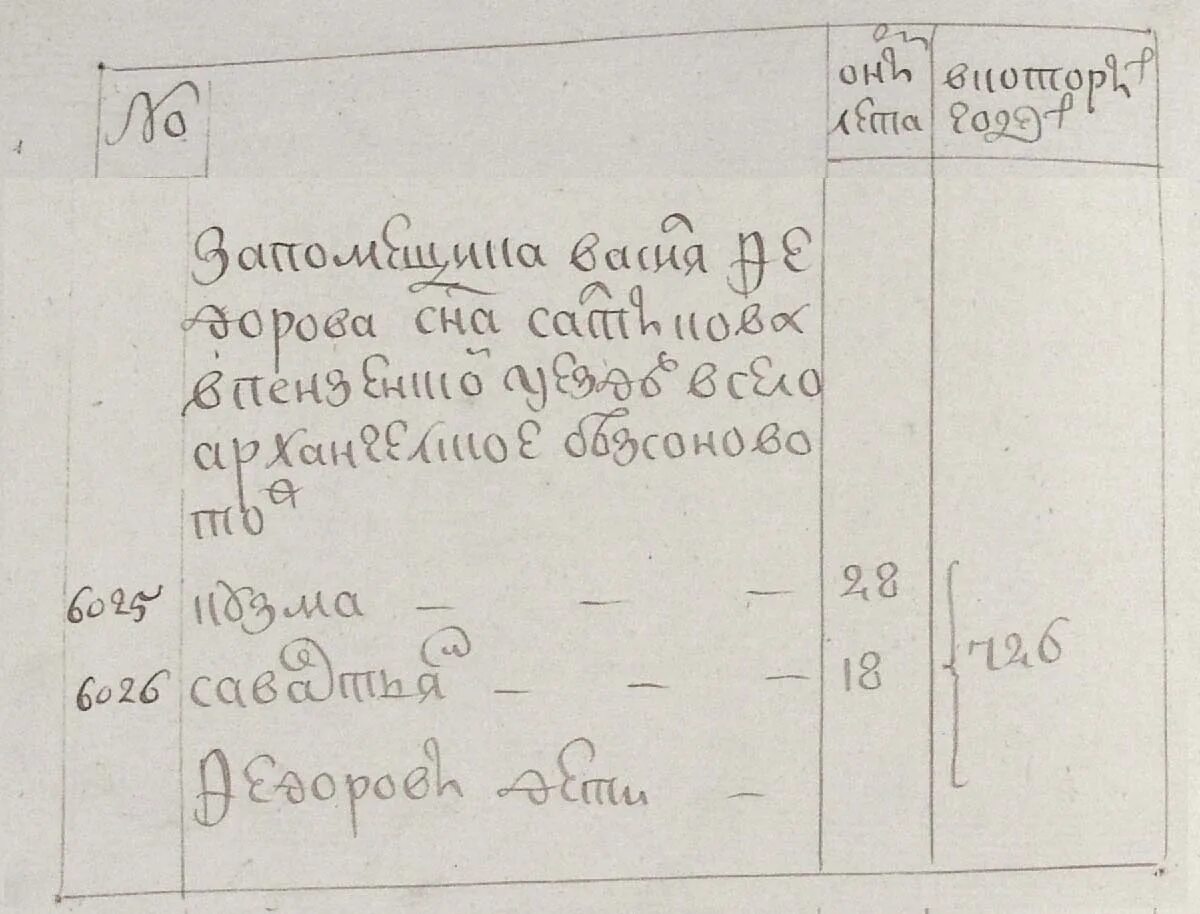 №
онъ лета
вкоторъ годъ
За помещика васиꙗ Ѳе
дорова сна сатѣкова
в пензенской уезде в село
архангелское обзсоново
то
6025 кузма — — — 28
6026 саватья — — — 18
726
Ѳедоровъ дети —